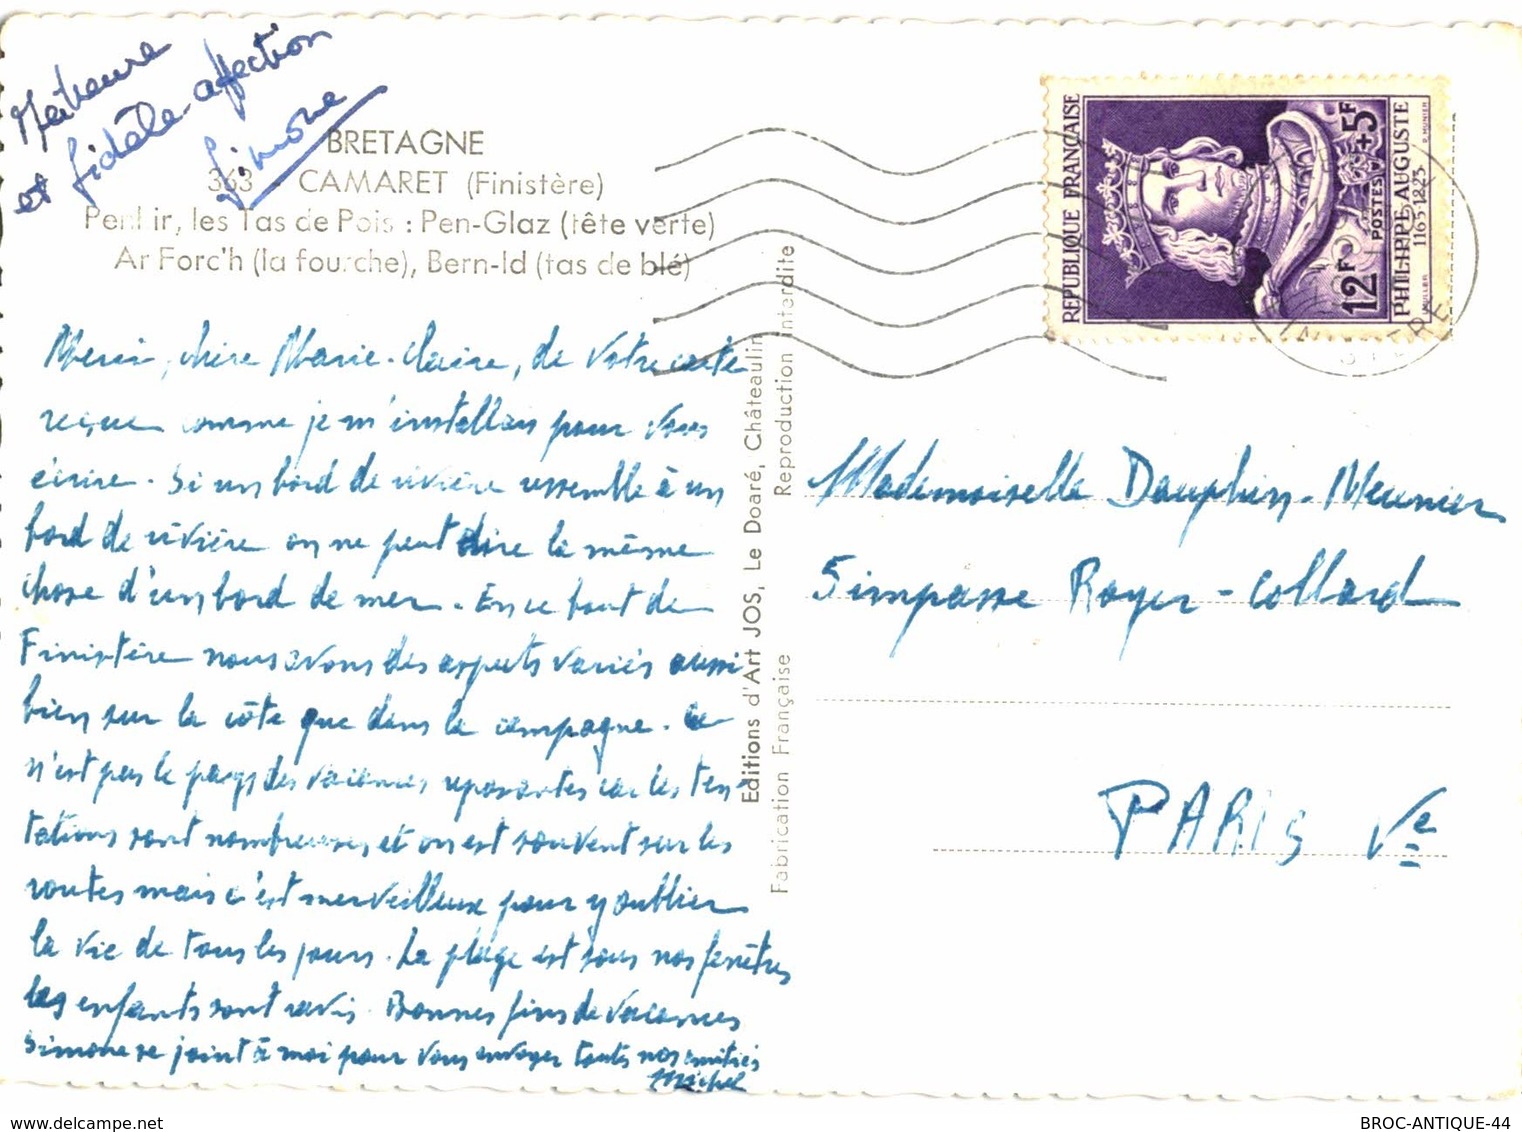 et fidèle affection
Simone
BRETAGNE
363 CAMARET (Finistère)
Penhir, les Tas de Pois : Pen-Glaz (tête verte)
Ar Forc'h (la fourche), Bern-Id (tas de blé)
Merci, chère Marie-Claire, de votre carte
reçue comme je m'installais pour vous
écrire. Si un bord de rivière ressemble à un
bord de rivière on ne peut dire la même
chose d'un bord de mer. En ce bout de
Finistère nous avons des aspects variés aussi
bien sur la côte que dans la campagne. Ce
n'est pas le pays des vacances reposantes car les ten-
tations sont nombreuses et on est souvent sur les
routes mais c'est merveilleux pour y oublier
la vie de tous les jours. La plage est sous nos fenêtres
les enfants sont ravis. Bonnes fins de vacances
Simone se joint à moi pour vous envoyer toutes nos amitiés
Michel
Editions d'Art JOS, Le Doaré, Châteaulin
Fabrication Française Reproduction interdite
REPUBLIQUE FRANÇAISE
12F +5F
POSTES
PHILIPPE AUGUSTE
1165-1223
MULLER P. MUNIER
Mademoiselle Dauphin-Meunier
5 impasse Royer-Collard
PARIS Ve
BROC-ANTIQUE-44